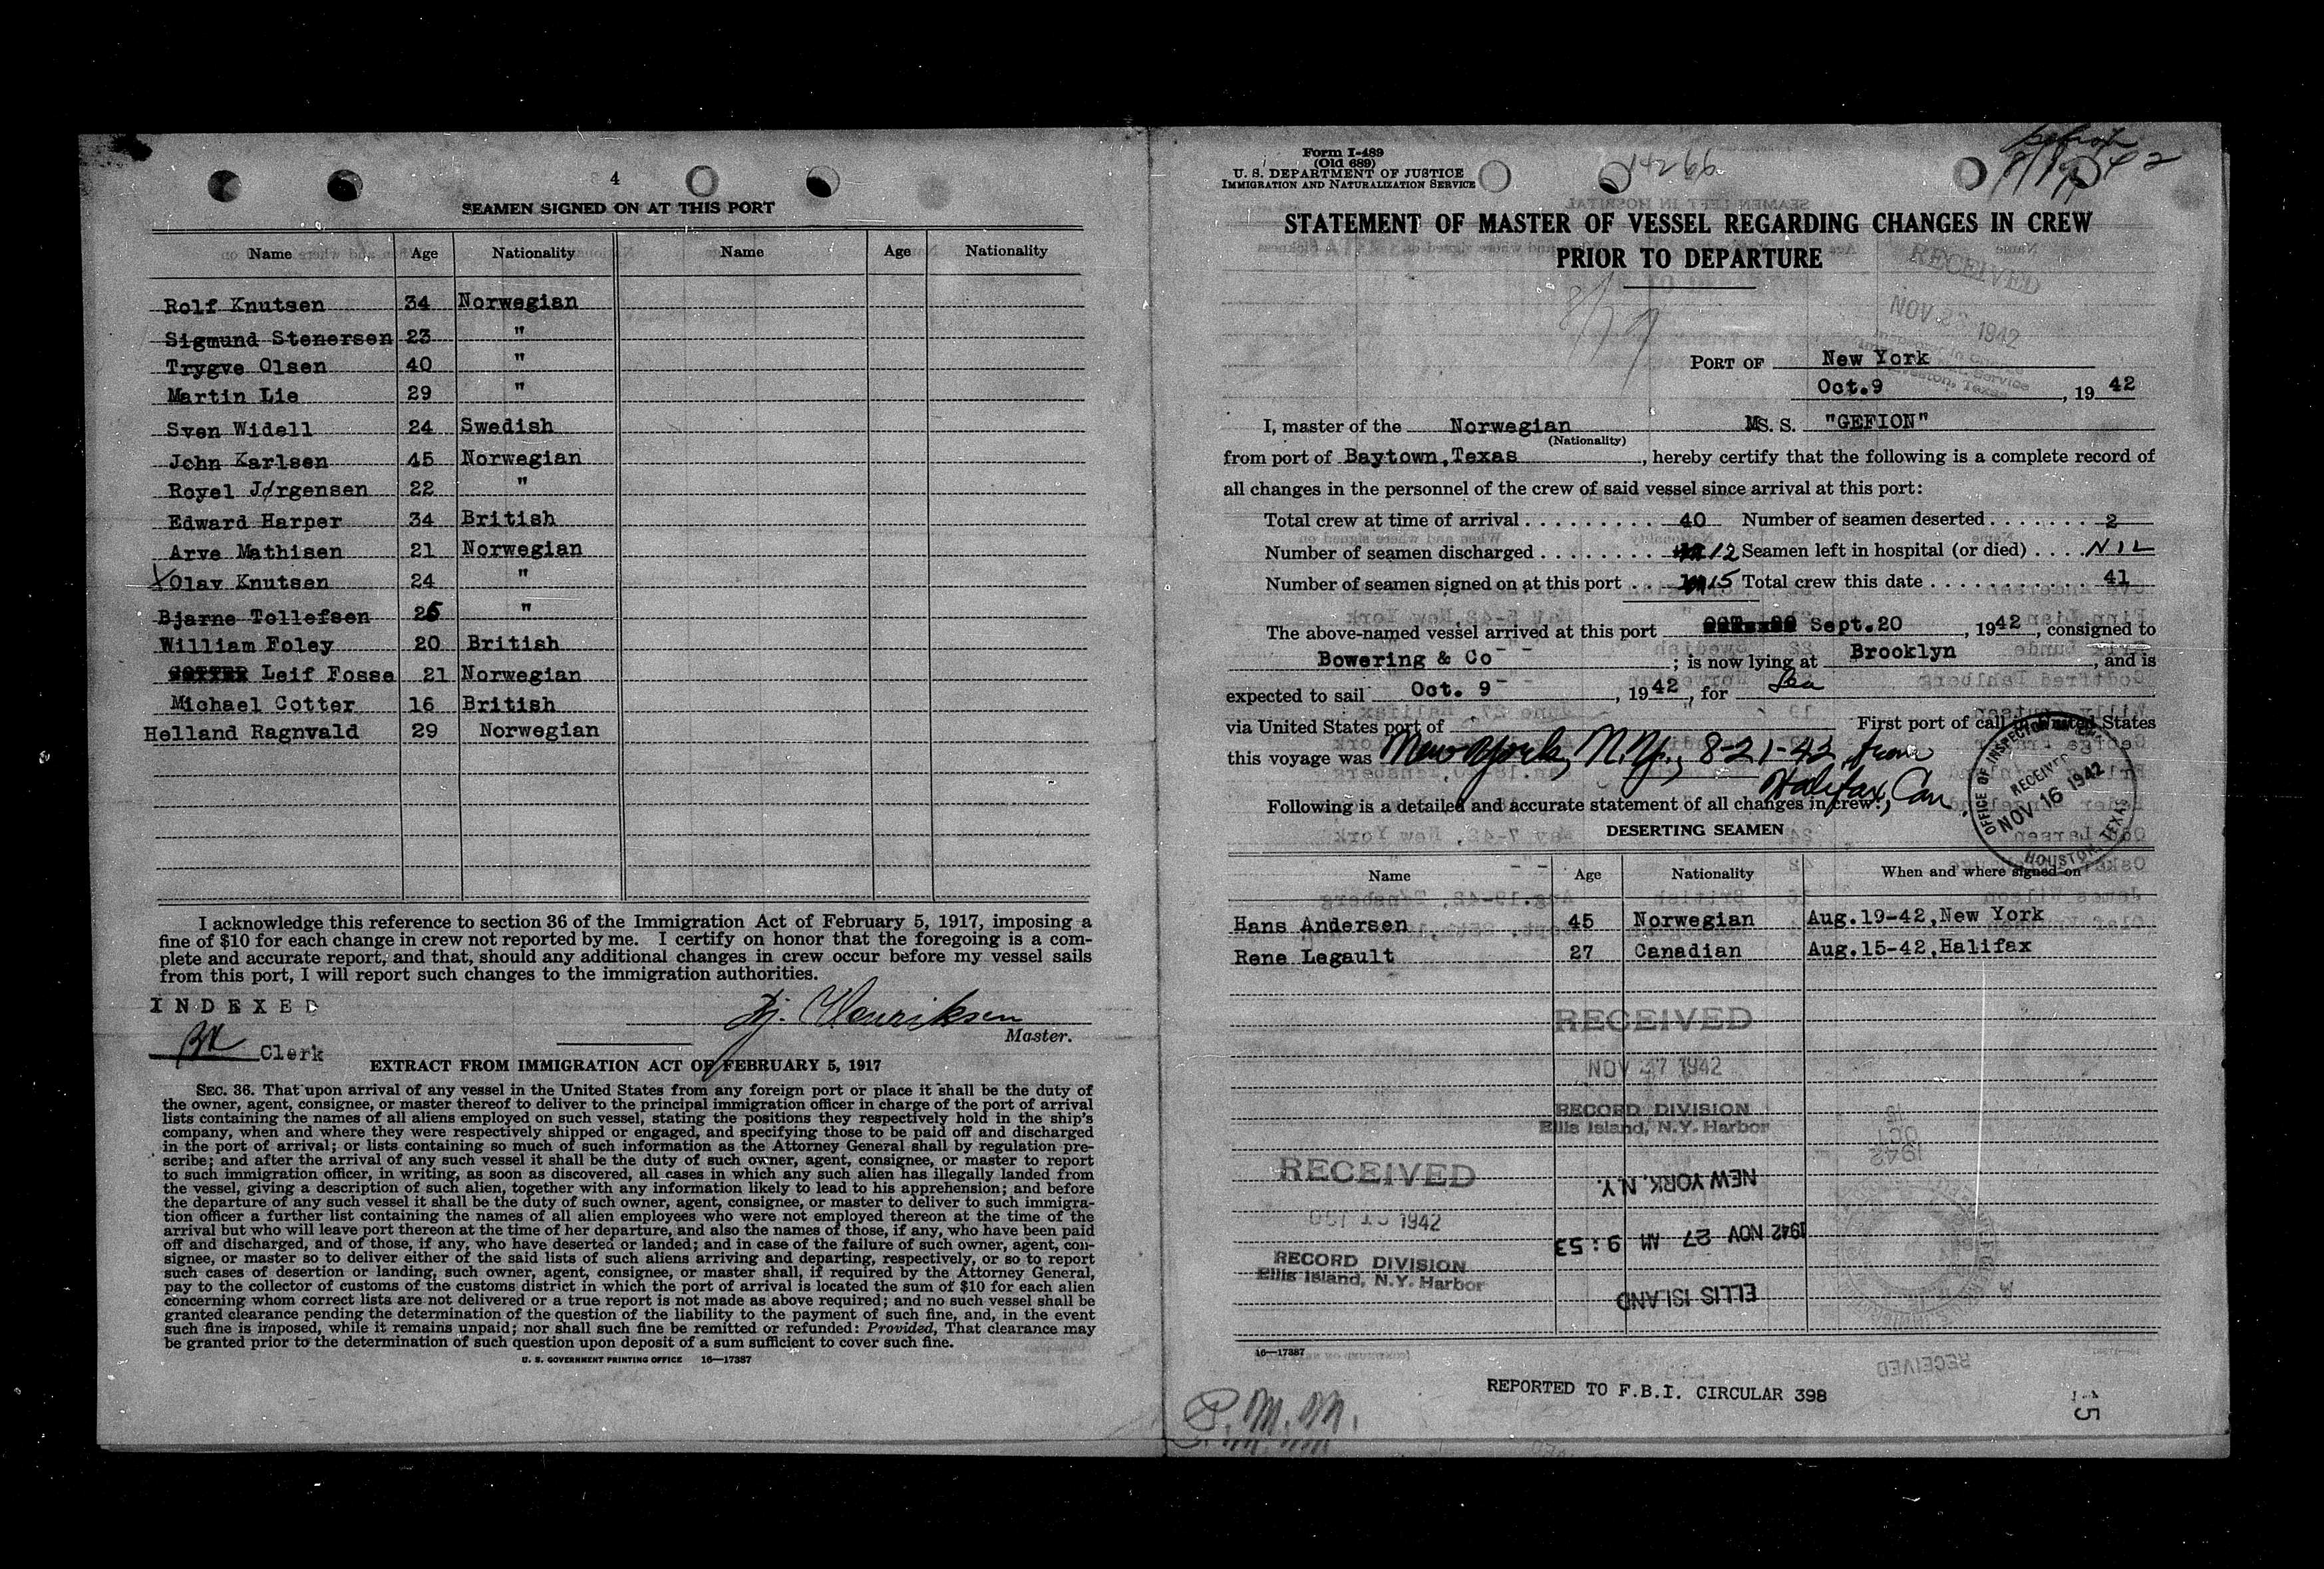 4
SEAMEN SIGNED ON AT THIS PORT
Name Age Nationality Name Age Nationality
Rolf Knutsen 34 Norwegian
Sigmund Stenersen 23 "
Trygve Olsen 40 "
Martin Lie 29 "
Sven Widell 24 Swedish
John Karlsen 45 Norwegian
Royel Jørgensen 22 "
Edward Harper 34 British
Arve Mathisen 21 Norwegian
Olav Knutsen 24 "
Bjarne Tollefsen 25 "
William Foley 20 British
Leif Fosse 21 Norwegian
Michael Cotter 16 British
Helland Ragnvald 29 Norwegian
I acknowledge this reference to section 36 of the Immigration Act of February 5, 1917, imposing a
fine of $10 for each change in crew not reported by me. I certify on honor that the foregoing is a com-
plete and accurate report, and that, should any additional changes in crew occur before my vessel sails
from this port, I will report such changes to the immigration authorities.
INDEXED
Clerk
Henriksen
Master.
EXTRACT FROM IMMIGRATION ACT OF FEBRUARY 5, 1917
SEC. 36. That upon arrival of any vessel in the United States from any foreign port or place it shall be the duty of
the owner, agent, consignee, or master thereof to deliver to the principal immigration officer in charge of the port of arrival
lists containing the names of all aliens employed on such vessel, stating the positions they respectively hold in the ship's
company, when and where they were respectively shipped or engaged, and specifying those to be paid off and discharged
in the port of arrival; or lists containing so much of such information as the Attorney General shall by regulation pre-
scribe; and after the arrival of any such vessel it shall be the duty of such owner, agent, consignee, or master to report
to such immigration officer, in writing, as soon as discovered, all cases in which any such alien has illegally landed from
the vessel, giving a description of such alien, together with any information likely to lead to his apprehension; and before
the departure of any such vessel it shall be the duty of such owner, agent, consignee, or master to deliver to such immigra-
tion officer a further list containing the names of all alien employees who were not employed thereon at the time of the
arrival but who will leave port thereon at the time of her departure, and also the names of those, if any, who have been paid
off and discharged, and of those, if any, who have deserted or landed; and in case of the failure of such owner, agent, con-
signee, or master so to deliver either of the said lists of such aliens arriving and departing, respectively, or so to report
such cases of desertion or landing, such owner, agent, consignee, or master shall, if required by the Attorney General,
pay to the collector of customs of the customs district in which the port of arrival is located the sum of $10 for each alien
concerning whom correct lists are not delivered or a true report is not made as above required; and no such vessel shall be
granted clearance pending the determination of the question of the liability to the payment of such fine, and, in the event
such fine is imposed, while it remains unpaid; nor shall such fine be remitted or refunded: Provided, That clearance may
be granted prior to the determination of such question upon deposit of a sum sufficient to cover such fine.
U. S. GOVERNMENT PRINTING OFFICE 16—17387
Form I-489
(Old 689)
U. S. DEPARTMENT OF JUSTICE
IMMIGRATION AND NATURALIZATION SERVICE
STATEMENT OF MASTER OF VESSEL REGARDING CHANGES IN CREW
PRIOR TO DEPARTURE
RECEIVED
NOV 1942
PORT OF New York
Oct.9, 19 42
I, master of the Norwegian MS. S. "GEFION"
(Nationality)
from port of Baytown, Texas, hereby certify that the following is a complete record of
all changes in the personnel of the crew of said vessel since arrival at this port:
Total crew at time of arrival . . . . . . . . . 40 Number of seamen deserted . . . . . . . 2
Number of seamen discharged . . . . . . . . 12 Seamen left in hospital (or died) . . . . NIL
Number of seamen signed on at this port . . 15 Total crew this date . . . . . . . . . . . . 41
The above-named vessel arrived at this port Sept.20, 1942, consigned to
Bowering & Co ; is now lying at Brooklyn, and is
expected to sail Oct. 9, 1942, for Sea
via United States port of First port of call in United States
this voyage was New York, N.Y., 8-21-42 from
Halifax, Can
Following is a detailed and accurate statement of all changes in crew:
OFFICE OF INSPECTOR
RECEIVED
NOV 16 1942
HOUSTON, TEXAS
DESERTING SEAMEN
Name Age Nationality When and where signed on
Hans Andersen 45 Norwegian Aug.19-42, New York
Rene Legault 27 Canadian Aug.15-42, Halifax
RECEIVED
NOV 27 1942
RECORD DIVISION
Ellis Island, N.Y. Harbor
RECEIVED
OCT 1942
RECORD DIVISION
Ellis Island, N.Y. Harbor
NEW YORK, N.Y.
1942 NOV 27 AM 9:53
ELLIS ISLAND
16—17387
RECEIVED
REPORTED TO F.B.I. CIRCULAR 398
P.M.M.